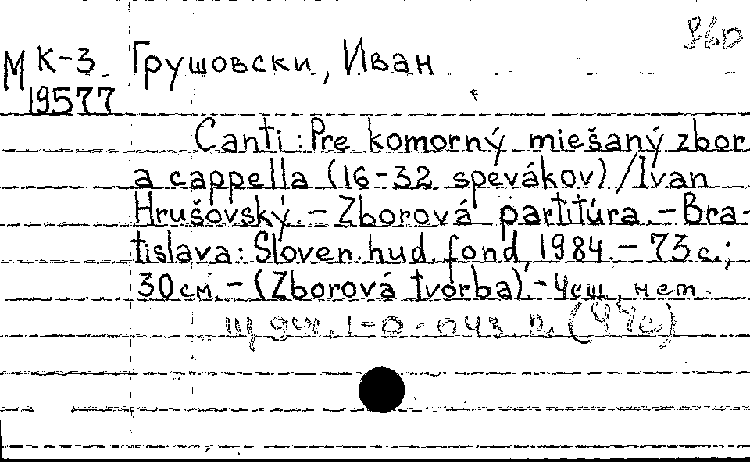 МК-3 Грушовски, Иван
19577
Canti: Pre komorný miešaný zbor
a cappella (16-32 spevákov) / Ivan
Hrušovský. – Zborová partitúra. – Bra-
tislava: Sloven. hud. fond, 1984. – 73 с.;
30 см. – (Zborová tvorba). –